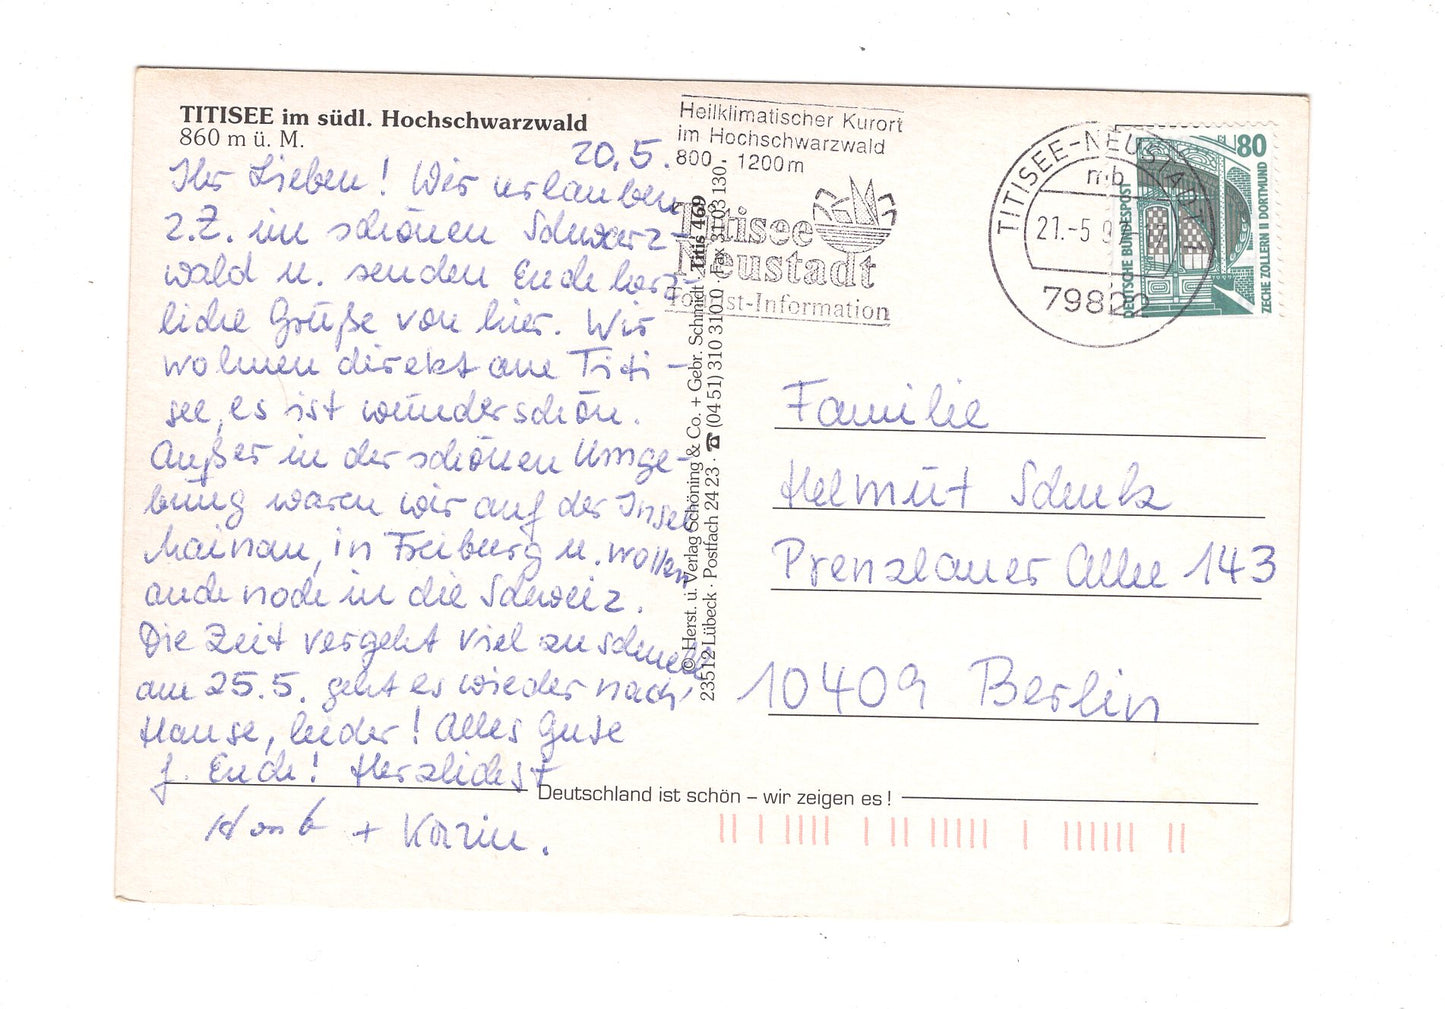 TITISEE im südl. Hochschwarzwald
860 m ü. M.
20.5.
Ihr Lieben! Wir urlauben
z.Z. im schönen Schwarz-
wald u. senden Euch herz-
liche Grüße von hier. Wir
wohnen direkt am Titi-
see, es ist wunderschön.
Außer in der schönen Umge-
bung waren wir auf der Insel
Mainau, in Freiburg u. wollen
auch noch in die Schweiz.
Die Zeit vergeht viel zu schnell
am 25.5. geht es wieder nach
Hause, leider! Alles Gute
f. Euch! Herzlichst
+ Karin.
Heilklimatischer Kurort
im Hochschwarzwald
800 - 1200m
Titisee
Neustadt
Tourist-Information
© Herst. u. Verlag Schöning & Co. + Gebr. Schmidt · Titis 469
23512 Lübeck · Postfach 24 23 · ☎ (04 51) 310 310 0 · Fax 31 03 130
TITISEE-NEUSTADT
mb
21.-5.9
79822
80
DEUTSCHE BUNDESPOST
ZECHE ZOLLERN II DORTMUND
Familie
Helmut Schulz
Prenzlauer Allee 143
10409 Berlin
Deutschland ist schön – wir zeigen es!